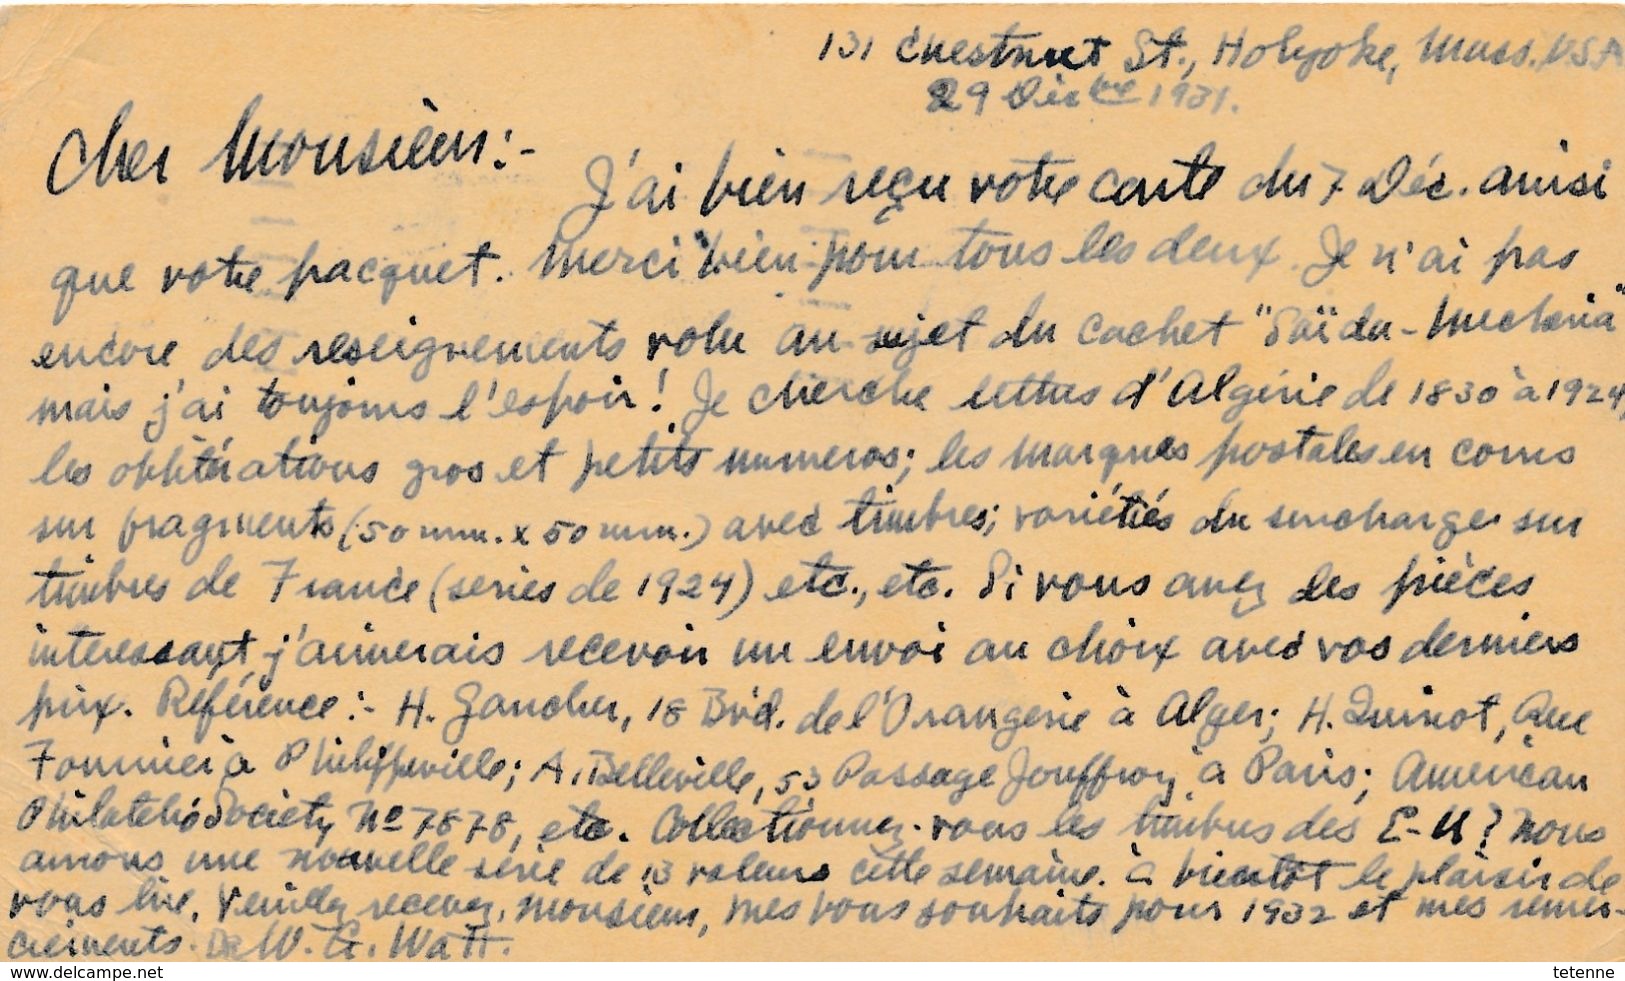 131 Chestnut St., Holyoke, Mass. USA
29 Déc bre 1931.
Cher Monsieur:-
J'ai bien reçu votre carte du 7 Déc. ainsi
que votre pacquet. Merci bien pour tous les deux. Je n'ai pas
encore des reseignements au sujet du cachet "Saïda-Mecheria"
mais j'ai toujours l'espoir! Je cherche lettres d'Algérie de 1830 à 1924,
les oblitérations gros et petits numeros; les marques postales en cours
sur fragments (50 mm. x 50 mm.) avec timbres; variétiés du surcharge sur
timbres de France (series de 1924) etc., etc. Si vous avez des pièces
interessant j'aimerais recevoir un envoi au choix avec vos derniers
prix. Reférence:- H. Gaucher, 18 Bvd. de l'Orangerie à Alger; H. Quinot, Rue
Fournier à Philippeville; A. Belleville, 53 Passage Jouffroy à Paris; American
Philatelic Society No 7878, etc. Collectionnez-vous les timbres des E-U? Nous
avons une nouvelle série de 13 valeurs cette semaine. à bientôt le plaisir de
vous lire. Veuillez recevez, Monsieur, mes vous souhaits pour 1932 et mes remer-
ciements. Dr W. G. Watt.
delcampe.net
tetenne